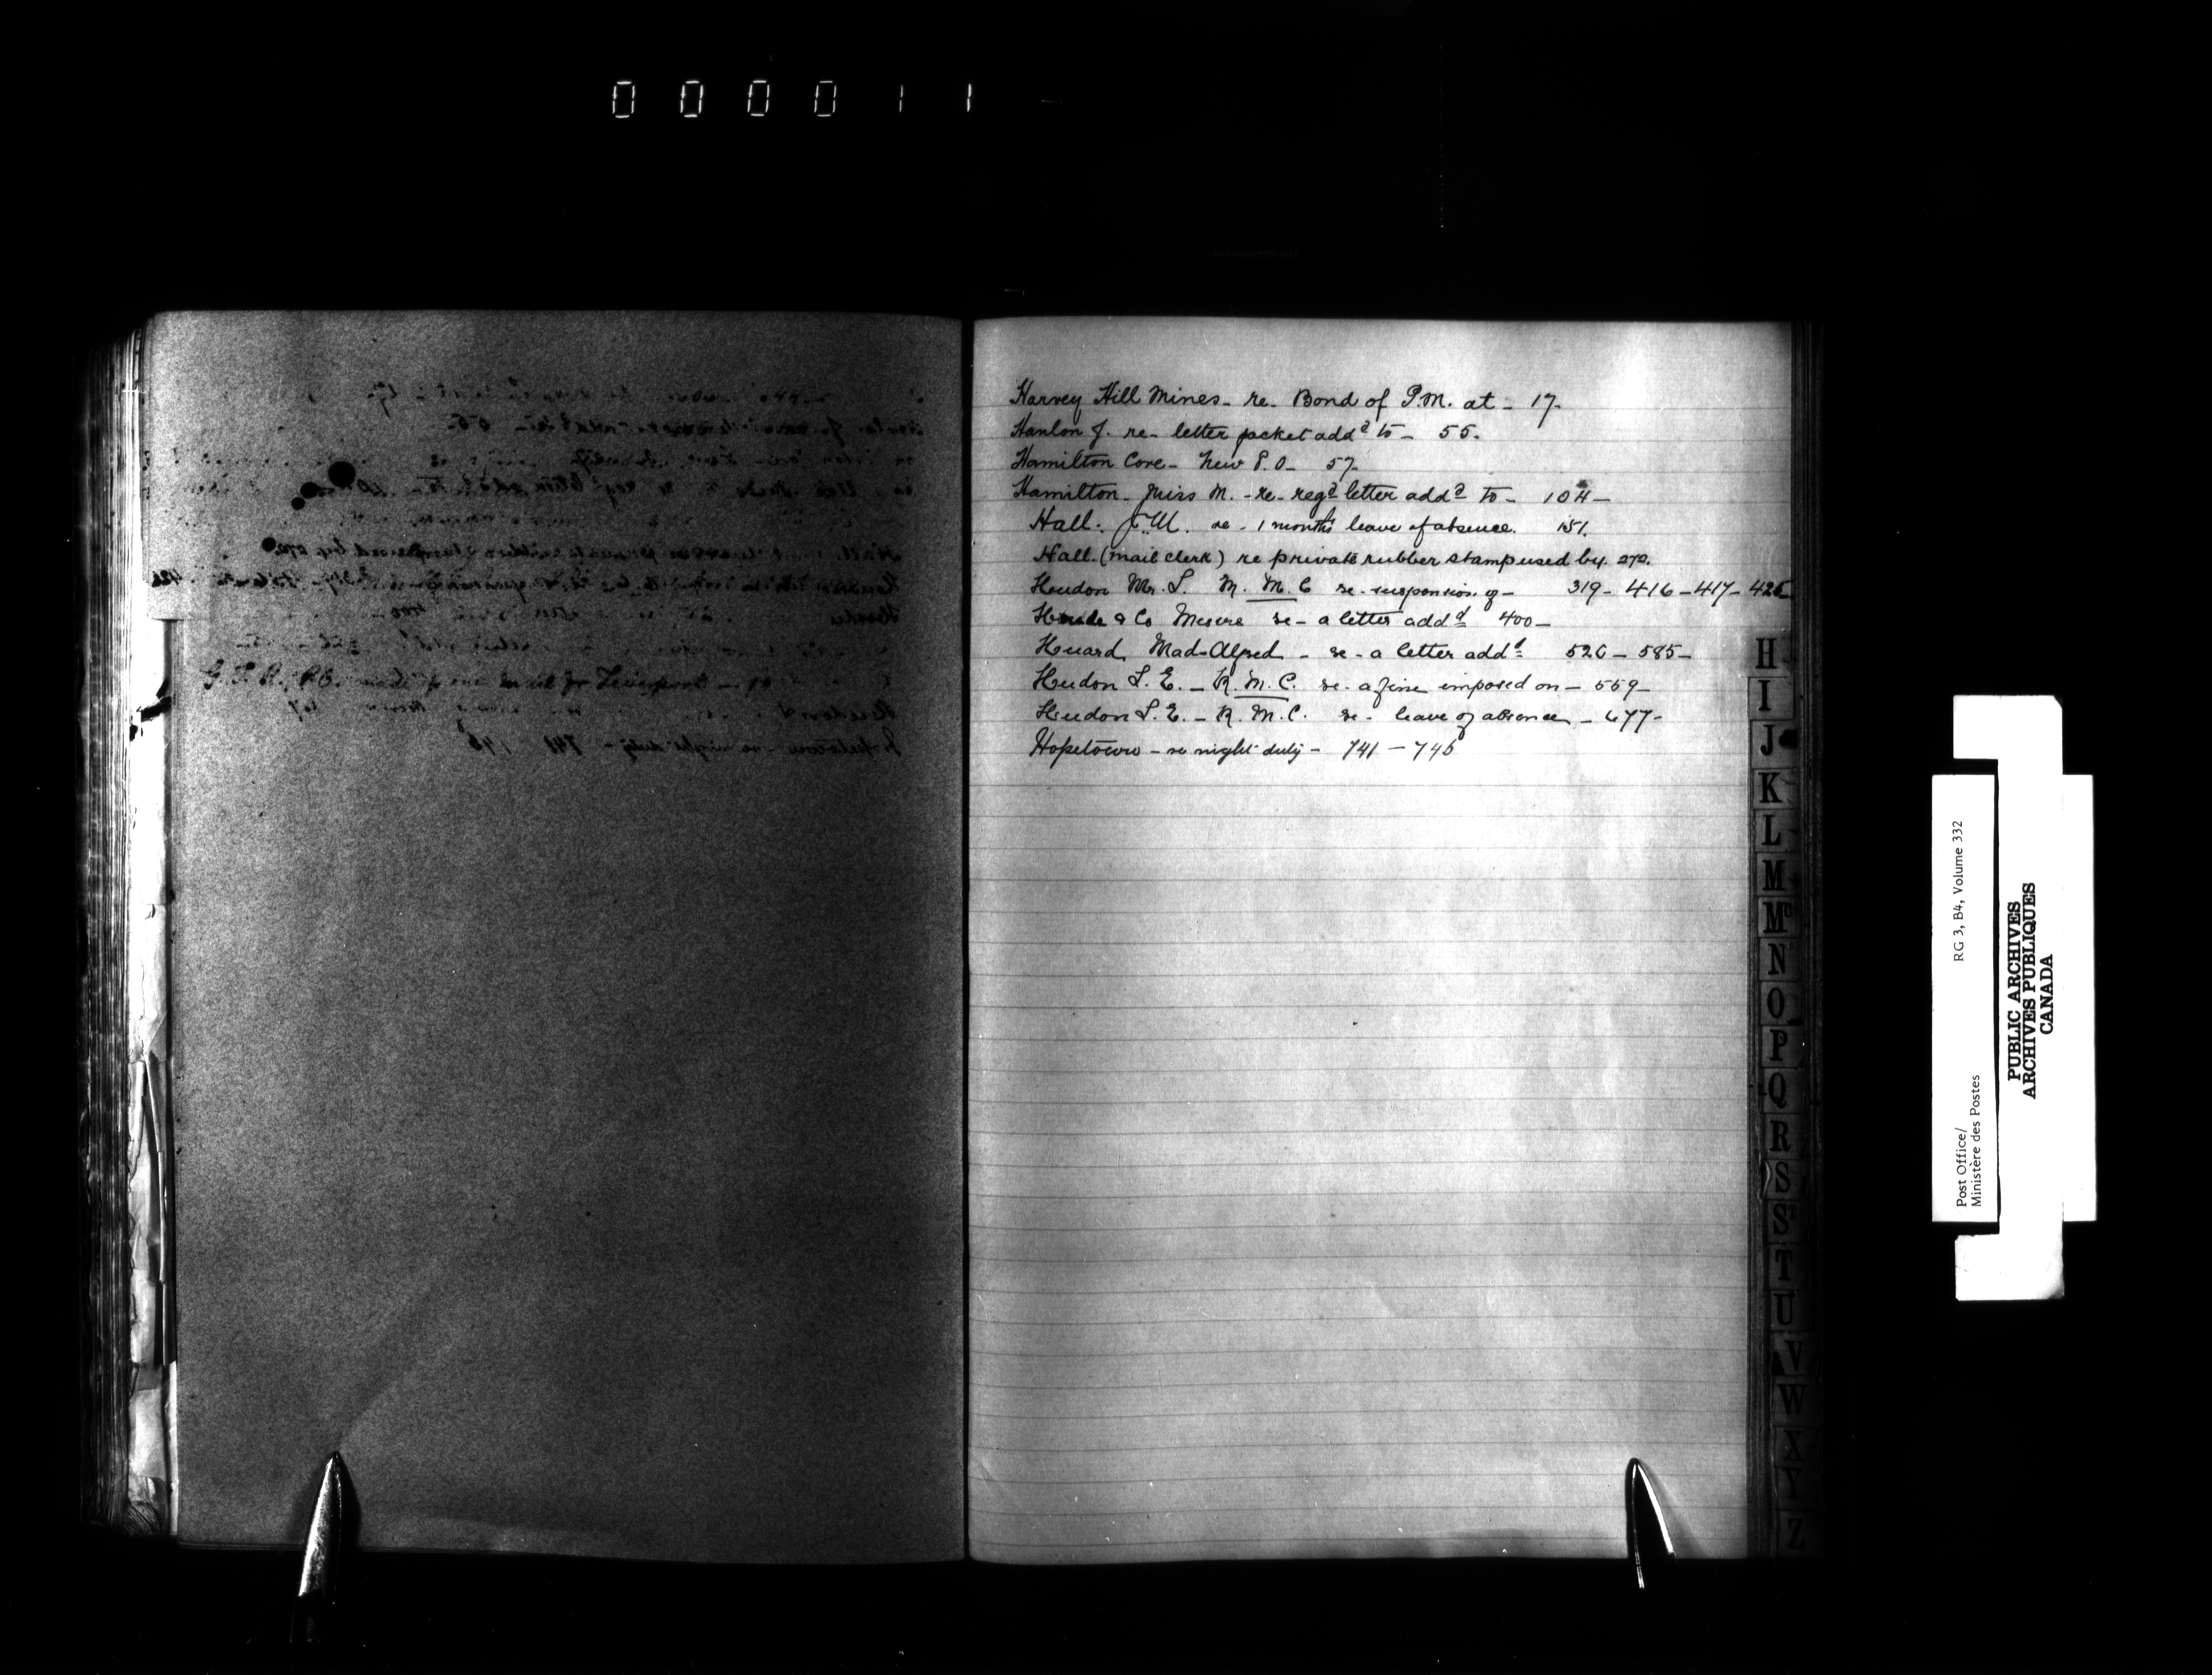 000011
Harvey Hill Mines - re - Bond of P.M. at - 17-
Hanlon J. re - letter packet addd to - 55.
Hamilton Cove - New P.O - 57-
Hamilton - Miss M. - re - regd letter addd to - 104 -
Hall. W. re - 1 months leave of absence. 151.
Hall. (mail clerk) re private rubber stamp used by. 272.
Heudon Mr. L. M. M. C re - suspension of - 319 - 416 - 417 - 426
& Co Messre re - a letter addd 400 -
Huard Mad - Alfred - re - a letter addd 526 - 585 -
Heudon L. E. - R. M. C. re - a fine imposed on - 559 -
Heudon L. E. - R. M. C. re - leave of absence - 677 -
Hopetown - re night duty - 741 - 745
H
I
J
K
L
M
Mc
N
O
P
Q
R
S
ST
T
U
V
W
X
Y
Z
Post Office/
Ministère des Postes
RG 3, B4, Volume 332
PUBLIC ARCHIVES
ARCHIVES PUBLIQUES
CANADA